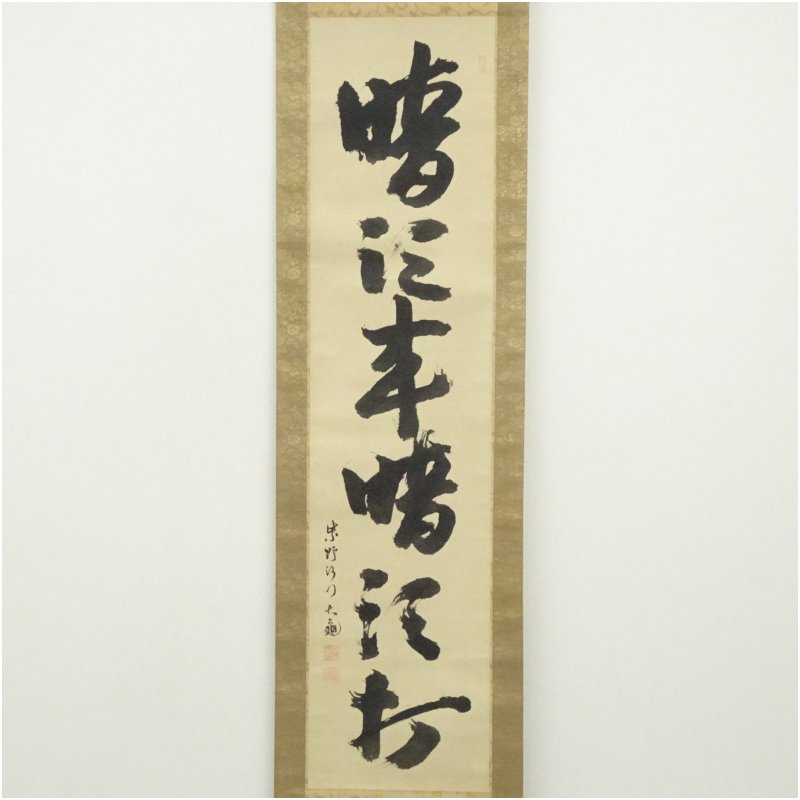 暗頭来暗頭打
紫野 大亀